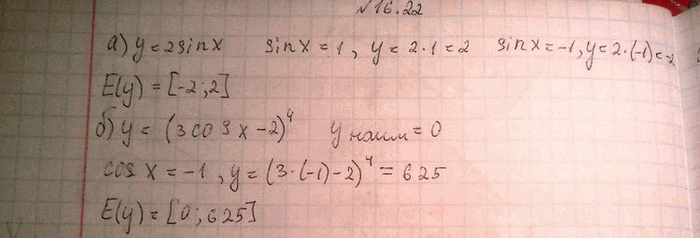 √16.22
а) y = 2sinx sinx = 1, y = 2·1 = 2 sinx = -1, y = 2·(-1) = -2
E(y) = [-2; 2]
б) y = (3cosx - 2)⁴ y наим = 0
cosx = -1, y = (3·(-1) - 2)⁴ = 625
E(y) = [0; 625]